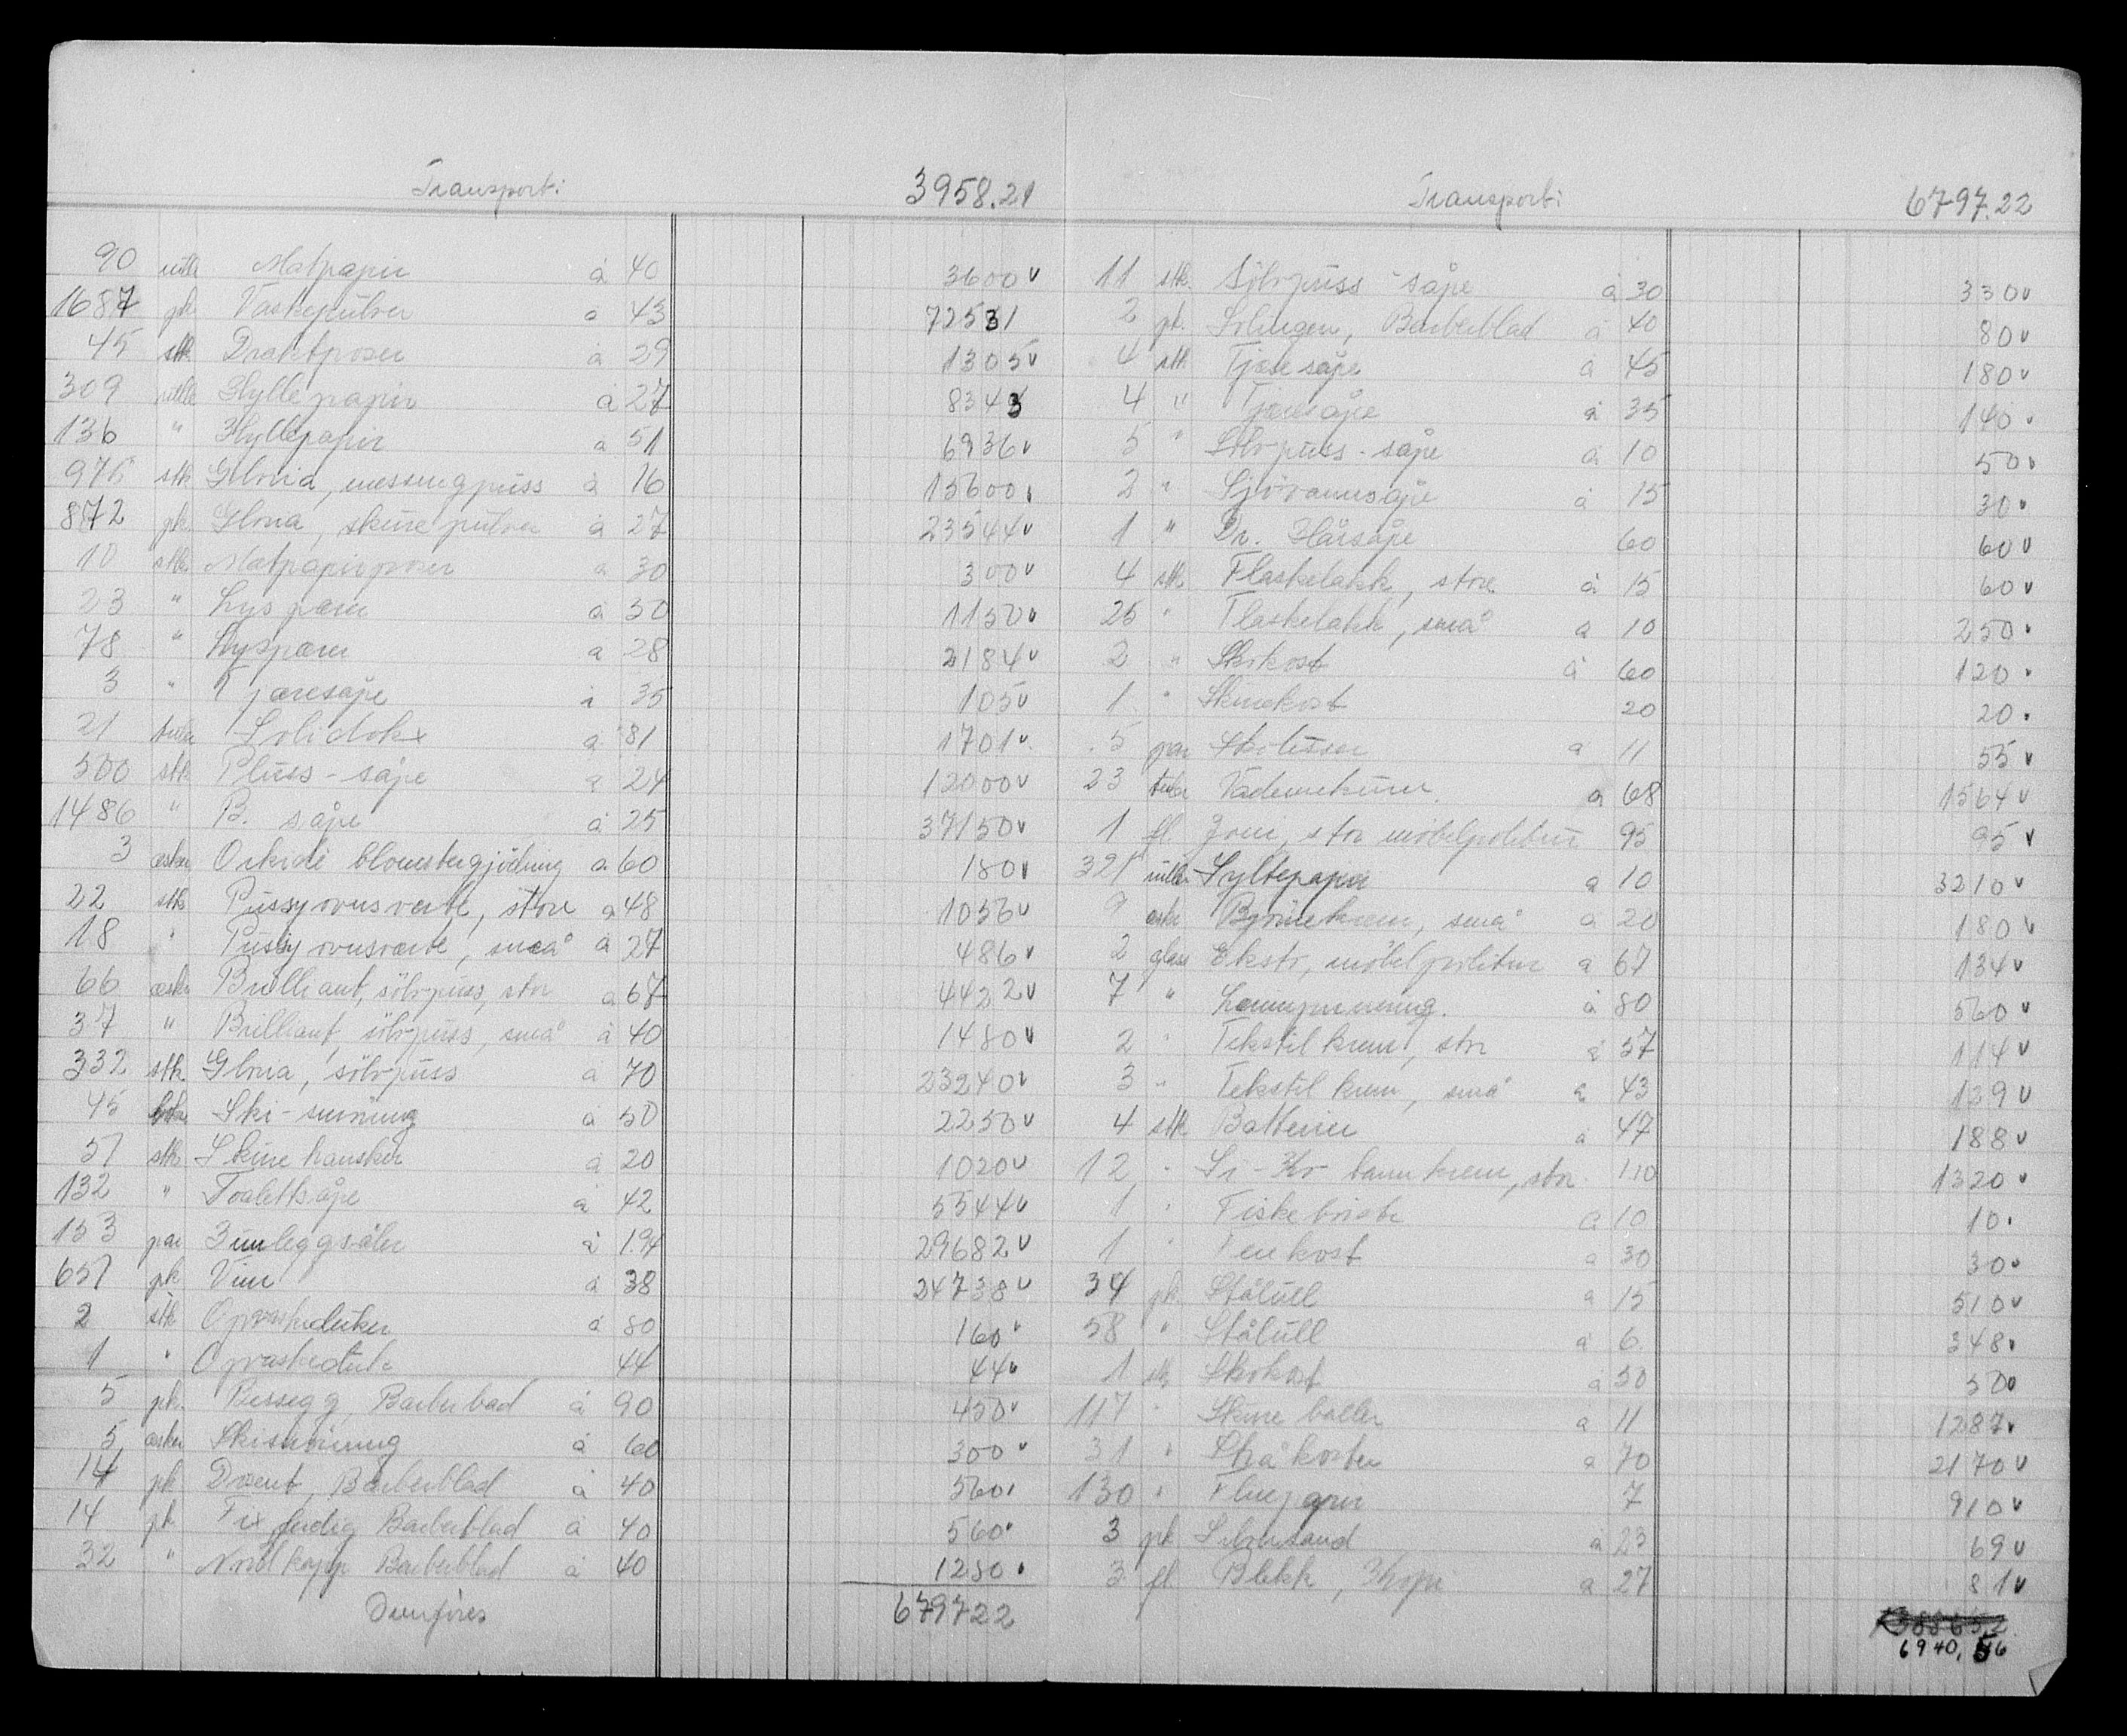 Transport: 3958.21
90 rull Matpapir à 40 3600
1687 pk Vaskepulver à 43 72531
45 stk Draktposer à 29 1305
309 rull Hyllepapir à 27 8343
136 " Hyllepapir a 51 6936
975 stk Gloria, messingpuss à 16 15600
872 pk Gloria, skurepulver à 27 23544
10 stk Matpapirposer a 30 300
23 " Lyspærer à 50 1150
78 " Lyspærer a 28 2184
3 " Tjæresåpe à 35 105
21 tube Solidox a 81 1701
500 stk Pluss-såpe a 24 12000
1486 " B. såpe à 25 37150
3 esker Orkidé blomstergjödning a 60 180
22 stk Pussy ovnsverte, store a 48 1056
18 " Pussy ovnsverte, små à 27 486
66 esker Brilliant, sölvpuss, stor a 67 4422
37 " Brilliant, sölvpuss, små à 40 1480
332 stk Gloria, sölvpuss a 70 23240
45 Ski-smöring a 50 2250
51 stk Skurehansker à 20 1020
132 " Toalettsåpe à 42 5544
153 par Innleggsåler à 1.94 29682
651 pk Vim à 38 24738
2 stk Opvaskeduker à 80 160
1 " Opvaskeduk 44 44
5 pk. Bessegg, Barberbad à 90 450
5 esker Skismöring à 60 300
14 pk Dozent, Barberblad à 40 560
14 pk Fix ferdig Barberblad à 40 560
32 " Nordkapp Barberblad à 40 1280
Overföres 679722
Transport: 6797.22
11 stk. Sölvpuss-såpe à 30 330
2 pk. Solingen, Barberblad à 40 80
4 stk Tjæresåpe a 45 180
4 " Tjæresåpe à 35 140
5 " Sölvpuss-såpe a 10 50
2 " Sjövannsåpe à 15 30
1 " Dr. Hårsåpe 60 60
4 stk Flaskelakk, store à 15 60
25 " Flaskelakk, små a 10 250
2 " Skokost à 60 120
1 " Skurekost 20 20
5 par Skolisser a 11 55
23 tuber Vademekum a 68 1564
1 fl. stor möbelpolitur 95 95
321 ruller Syltepapir a 10 3210
9 eske Brynekrem, små a 20 180
2 glass Ekstr. möbelpolitur a 67 134
7 " à 80 560
2 " Tekstilkrem, stor à 57 114
3 " Tekstilkrem, små a 43 129
4 stk Batterier a 47 188
12 " tannkrem, stor 1.10 1320
1 " Fiskebörste a 10 10
1 " Tekost a 30 30
34 pk. Stålull a 15 510
58 " Stålull à 6 348
1 stk Skokost à 50 50
117 " Skureboller a 11 1287
31 " Stråkoster a 70 2170
130 " Fluepapir 7 910
3 pk Sölvsand à 23 69
3 fl Blekk, Kopi a 27 81
6940,56